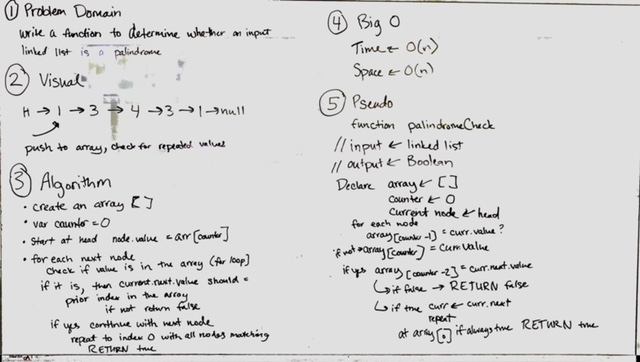 ① Problem Domain
write a function to determine whether an input
linked list is a palindrome
② Visual
H → 1 → 3 → 4 → 3 → 1 → null
push to array, check for repeated values
③ Algorithm
• create an array []
• var counter = 0
• start at head node.value = arr[counter]
• for each next node
check if value is in the array (for loop)
if it is, then current.next.value should =
prior index in the array
if not return false
if yes continue with next node
repeat to index 0 with all nodes matching
RETURN true
④ Big O
Time ← O(n)
Space ← O(n)
⑤ Pseudo
function palindromeCheck
// input ← linked list
// output ← Boolean
Declare array ← []
counter ← 0
current node ← head
for each node
array[counter -1] = curr.value?
if not → array[counter] = curr.value
if yes array[counter -2] = curr.next.value
↳ if false → RETURN false
↳ if true curr ← curr.next
repeat
at array[0] if always true RETURN true